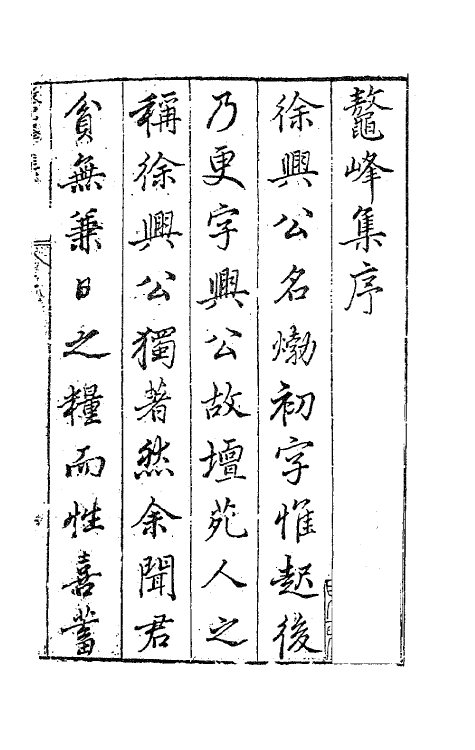 鼇峰集序
徐興公名㶿初字惟起後
乃更字興公故壇苑人之
稱徐興公獨著然余聞君
貧無兼日之糧而性喜蓄